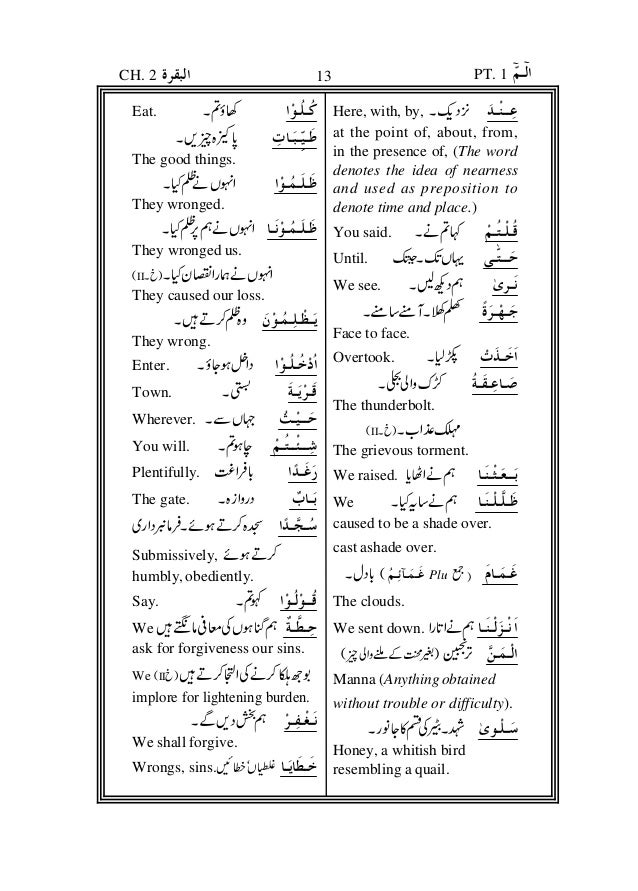 CH. 2 البقرة 13 PT. 1 الٓمّٓ
عِنْدَ نزدیک۔ Here, with, by,
at the point of, about, from,
in the presence of, (The word
denotes the idea of nearness
and used as preposition to
denote time and place.)
قُلْتُمْ کہا تم نے۔ You said.
حَتّٰى یہاں تک۔ جبتک Until.
نَرىٰ ہم دیکھ لیں۔ We see.
جَهْرَةً کھلم کھلا۔ آمنے سامنے۔
Face to face.
اَخَذَتْ پکڑ لیا۔ Overtook.
صَاعِقَةُ کڑک والی بجلی۔
The thunderbolt.
مہلک عذاب۔ (خ۔II)
The grievous torment.
بَعَثْنَا ہم نے اٹھایا We raised.
ظَلَّلْنَا ہم نے سایہ کیا۔ We
caused to be a shade over.
cast ashade over.
غَمَامَ (جمع Plu غَمَآئِمُ) بادل۔
The clouds.
اَنْزَلْنَا ہم نے اتارا We sent down.
الْمَنَّ ترنجبین (بغیر محنت کے ملنے والی چیز)
Manna (Anything obtained
without trouble or difficulty).
سَلْوىٰ شہد۔ بٹیر کی قسم کا جانور۔
Honey, a whitish bird
resembling a quail.
كُلُوْا کھاؤ تم۔ Eat.
طَيِّبَاتِ پاکیزہ چیزیں۔
The good things.
ظَلَمُوْا انہوں نے ظلم کیا۔
They wronged.
ظَلَمُوْنَا انہوں نے ہم پر ظلم کیا۔
They wronged us.
انہوں نے ہمارا نقصان کیا۔ (خ۔II)
They caused our loss.
يَظْلِمُوْنَ وہ ظلم کرتے ہیں۔
They wrong.
اُدْخُلُوْا داخل ہو جاؤ۔ Enter.
قَرْيَةَ بستی۔ Town.
حَيْثُ جہاں سے۔ Wherever.
شِئْتُمْ چاہو تم۔ You will.
رَغَدًا بافراغت Plentifully.
بَابٌ دروازہ۔ The gate.
سُجَّدًا سجدہ کرتے ہوئے۔ فرمانبرداری
کرتے ہوئے Submissively,
humbly, obediently.
قُوْلُوْا کہو تم۔ Say.
حِطَّةٌ ہم گناہوں کی معافی مانگتے ہیں We
ask for forgiveness our sins.
بوجھ ہلکا کرنے کی التجا کرتے ہیں (خ II) We
implore for lightening burden.
نَغْفِرْ ہم بخش دیں گے۔
We shall forgive.
خَطَايَا غلطیاں / خطائیں Wrongs, sins.